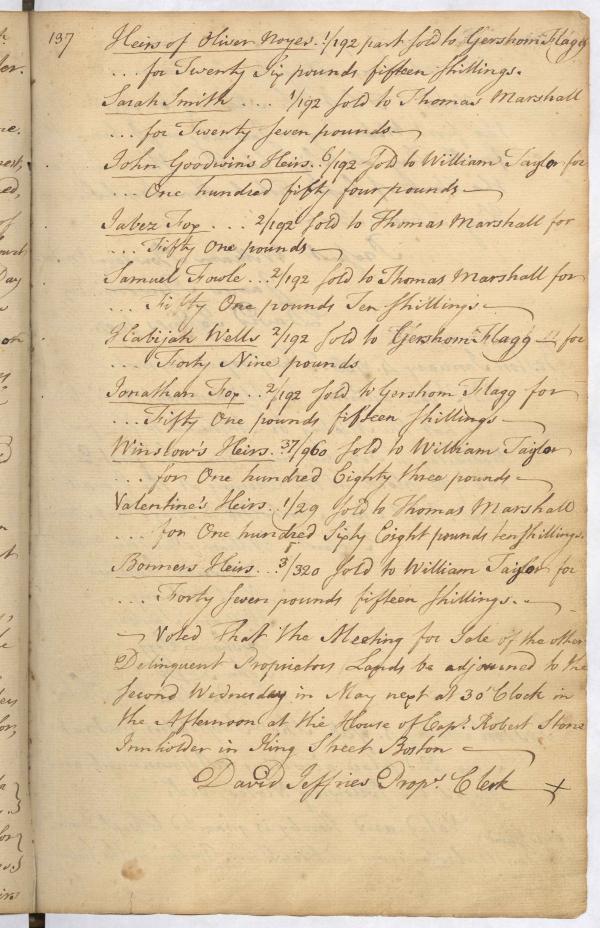 137
Heirs of Oliver Noyes. 1/192 part sold to Gershom Flagg
... for Twenty Six pounds fifteen shillings.
Sarah Smith .... 1/192 sold to Thomas Marshall
... for Twenty Seven pounds
John Goodwin's Heirs. 6/192 sold to William Taylor for
... One hundred fifty four pounds
Jabez Fox .... 2/192 sold to Thomas Marshall for
.... Fifty One pounds
Samuel Fowle ... 2/192 sold to Thomas Marshall for
.... Fifty One pounds Ten shillings
Habijah Wells 2/192 sold to Gershom Flagg for
.... Forty Nine pounds
Jonathan Fox .. 2/192 sold to Gershom Flagg for
.... Fifty One pounds fifteen shillings
Winslow's Heirs. 37/960 sold to William Taylor
... for One hundred Eighty three pounds
Valentine's Heirs. 1/29 sold to Thomas Marshall
... for One hundred Sixty Eight pounds ten shillings.
Bonners Heirs... 3/320 sold to William Taylor for
.... Forty seven pounds fifteen shillings.
Voted That the Meeting for Sale of the other
Delinquent Proprietors Lands be adjourned to the
Second Wednesday in May next at 3 o'Clock in
the Afternoon at the House of Capt. Robert Stone
Innholder in King Street Boston
David Jeffries Propr. Clerk